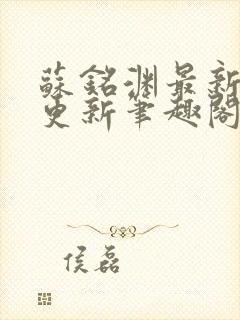 蘇銘淵最新
更新筆趣閣
侯磊